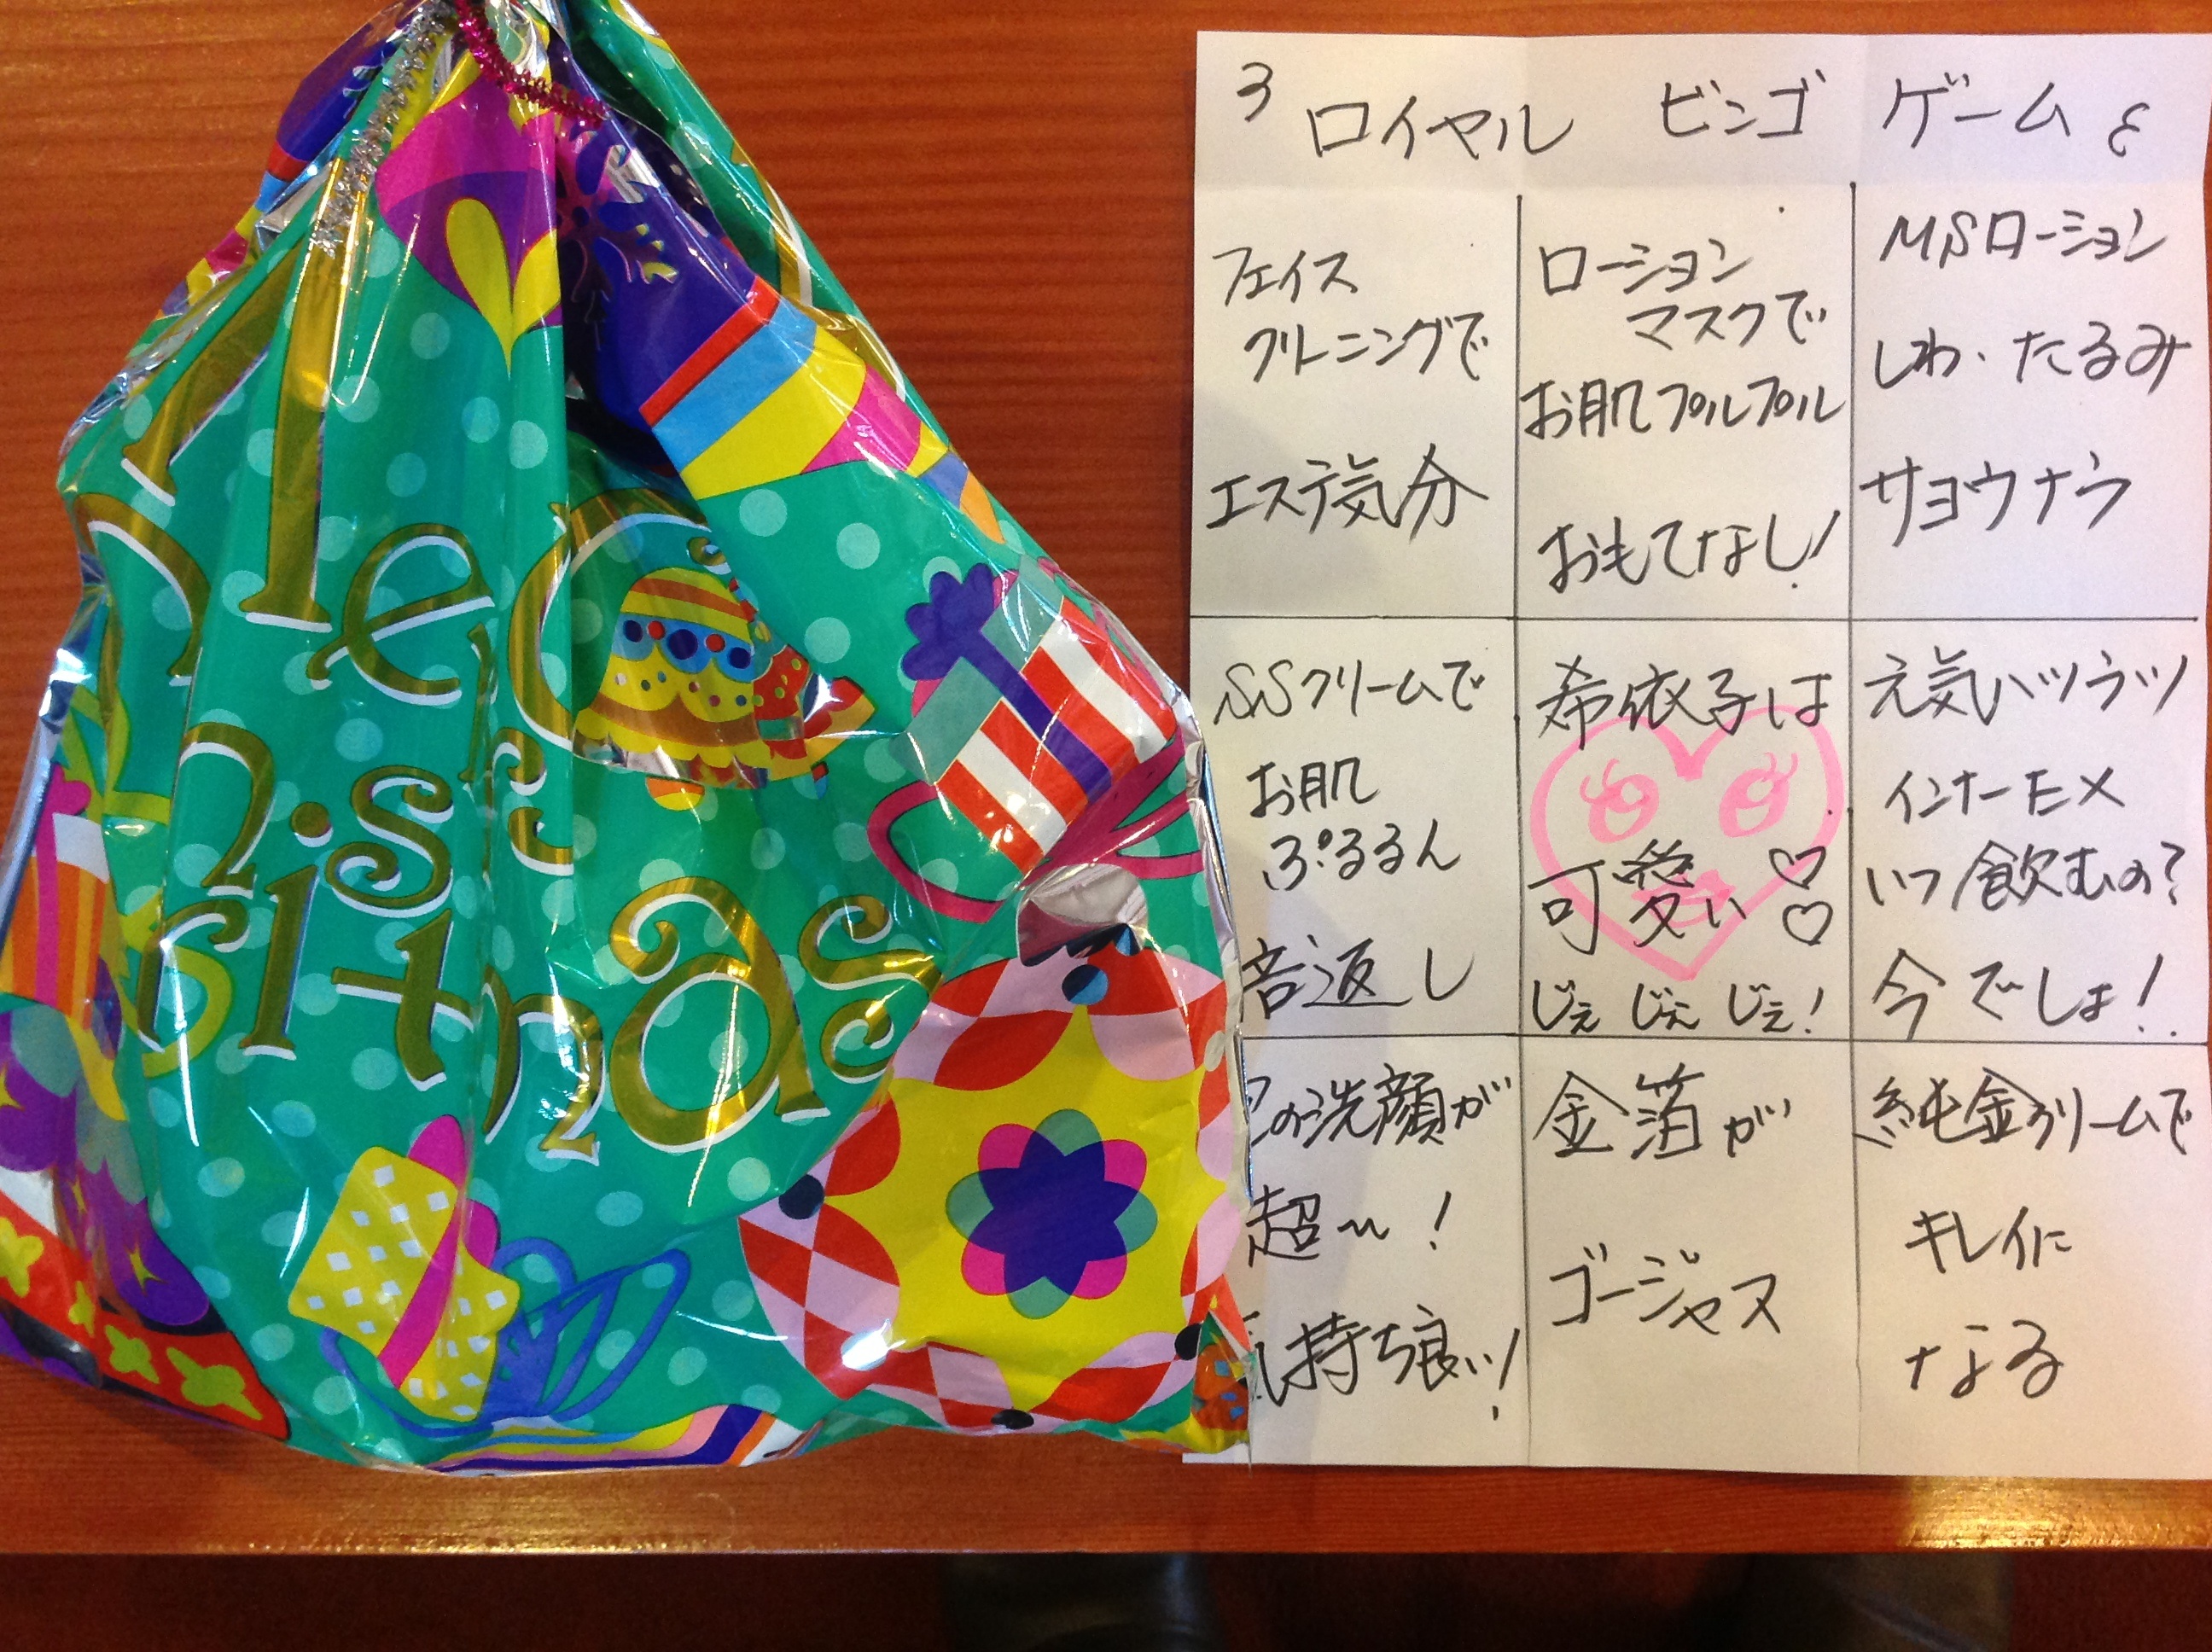 Merry
Christmas
ロイヤル ビンゴ ゲーム
フェイス
クリーニングで
エステ気分
ローション
マスクで
お肌プルプル
おもてなし!
MSローション
しわ・たるみ
サヨウナラ
SSクリームで
お肌
ぷるるん
倍返し
希依子は
可愛い♡♡
じぇ じぇ じぇ!
元気ハツラツ
インナーEX
いつ飲むの?
今でしょ!
の洗顔が
超〜!
気持ち良い!
金箔が
ゴージャス
純金クリームで
キレイに
なる